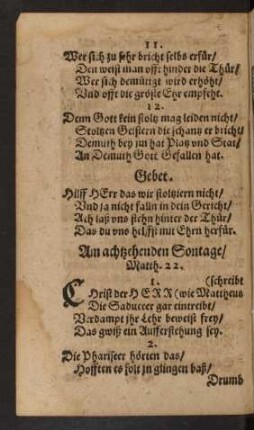 11.
Wer sich zu sehr bricht selbs erfür/
Den weist man offt hinder die Thür/
Wer sich demütigt wird erhöht/
Vnd offt die gröste Ehr empfeht.
12.
Denn Gott kein stoltz mag leiden nicht/
Stoltzen Geistern die schantz er bricht/
Demuth bey jm hat Platz vnd Stat/
An Demuth Gott Gefallen hat.
Gebet.
Hilff HErr das wir stoltzieren nicht/
Vnd ja nicht falln in dein Gericht/
Ach laß vns stehn hinter der Thür/
Das du vns helffst mit Ehrn herfür.
Am achtzehenden Sontage/
Matth. 22.
1.
(schreibt
CHrist der HERR (wie Mattheus
Die Saduceer gar eintreibt/
Verdampt jhr Lehr beweist frey/
Das gwiß ein Aufferstehung sey.
2.
Die Phariseer hörten das/
Hofften es solt jn glingen baß/
Drumb